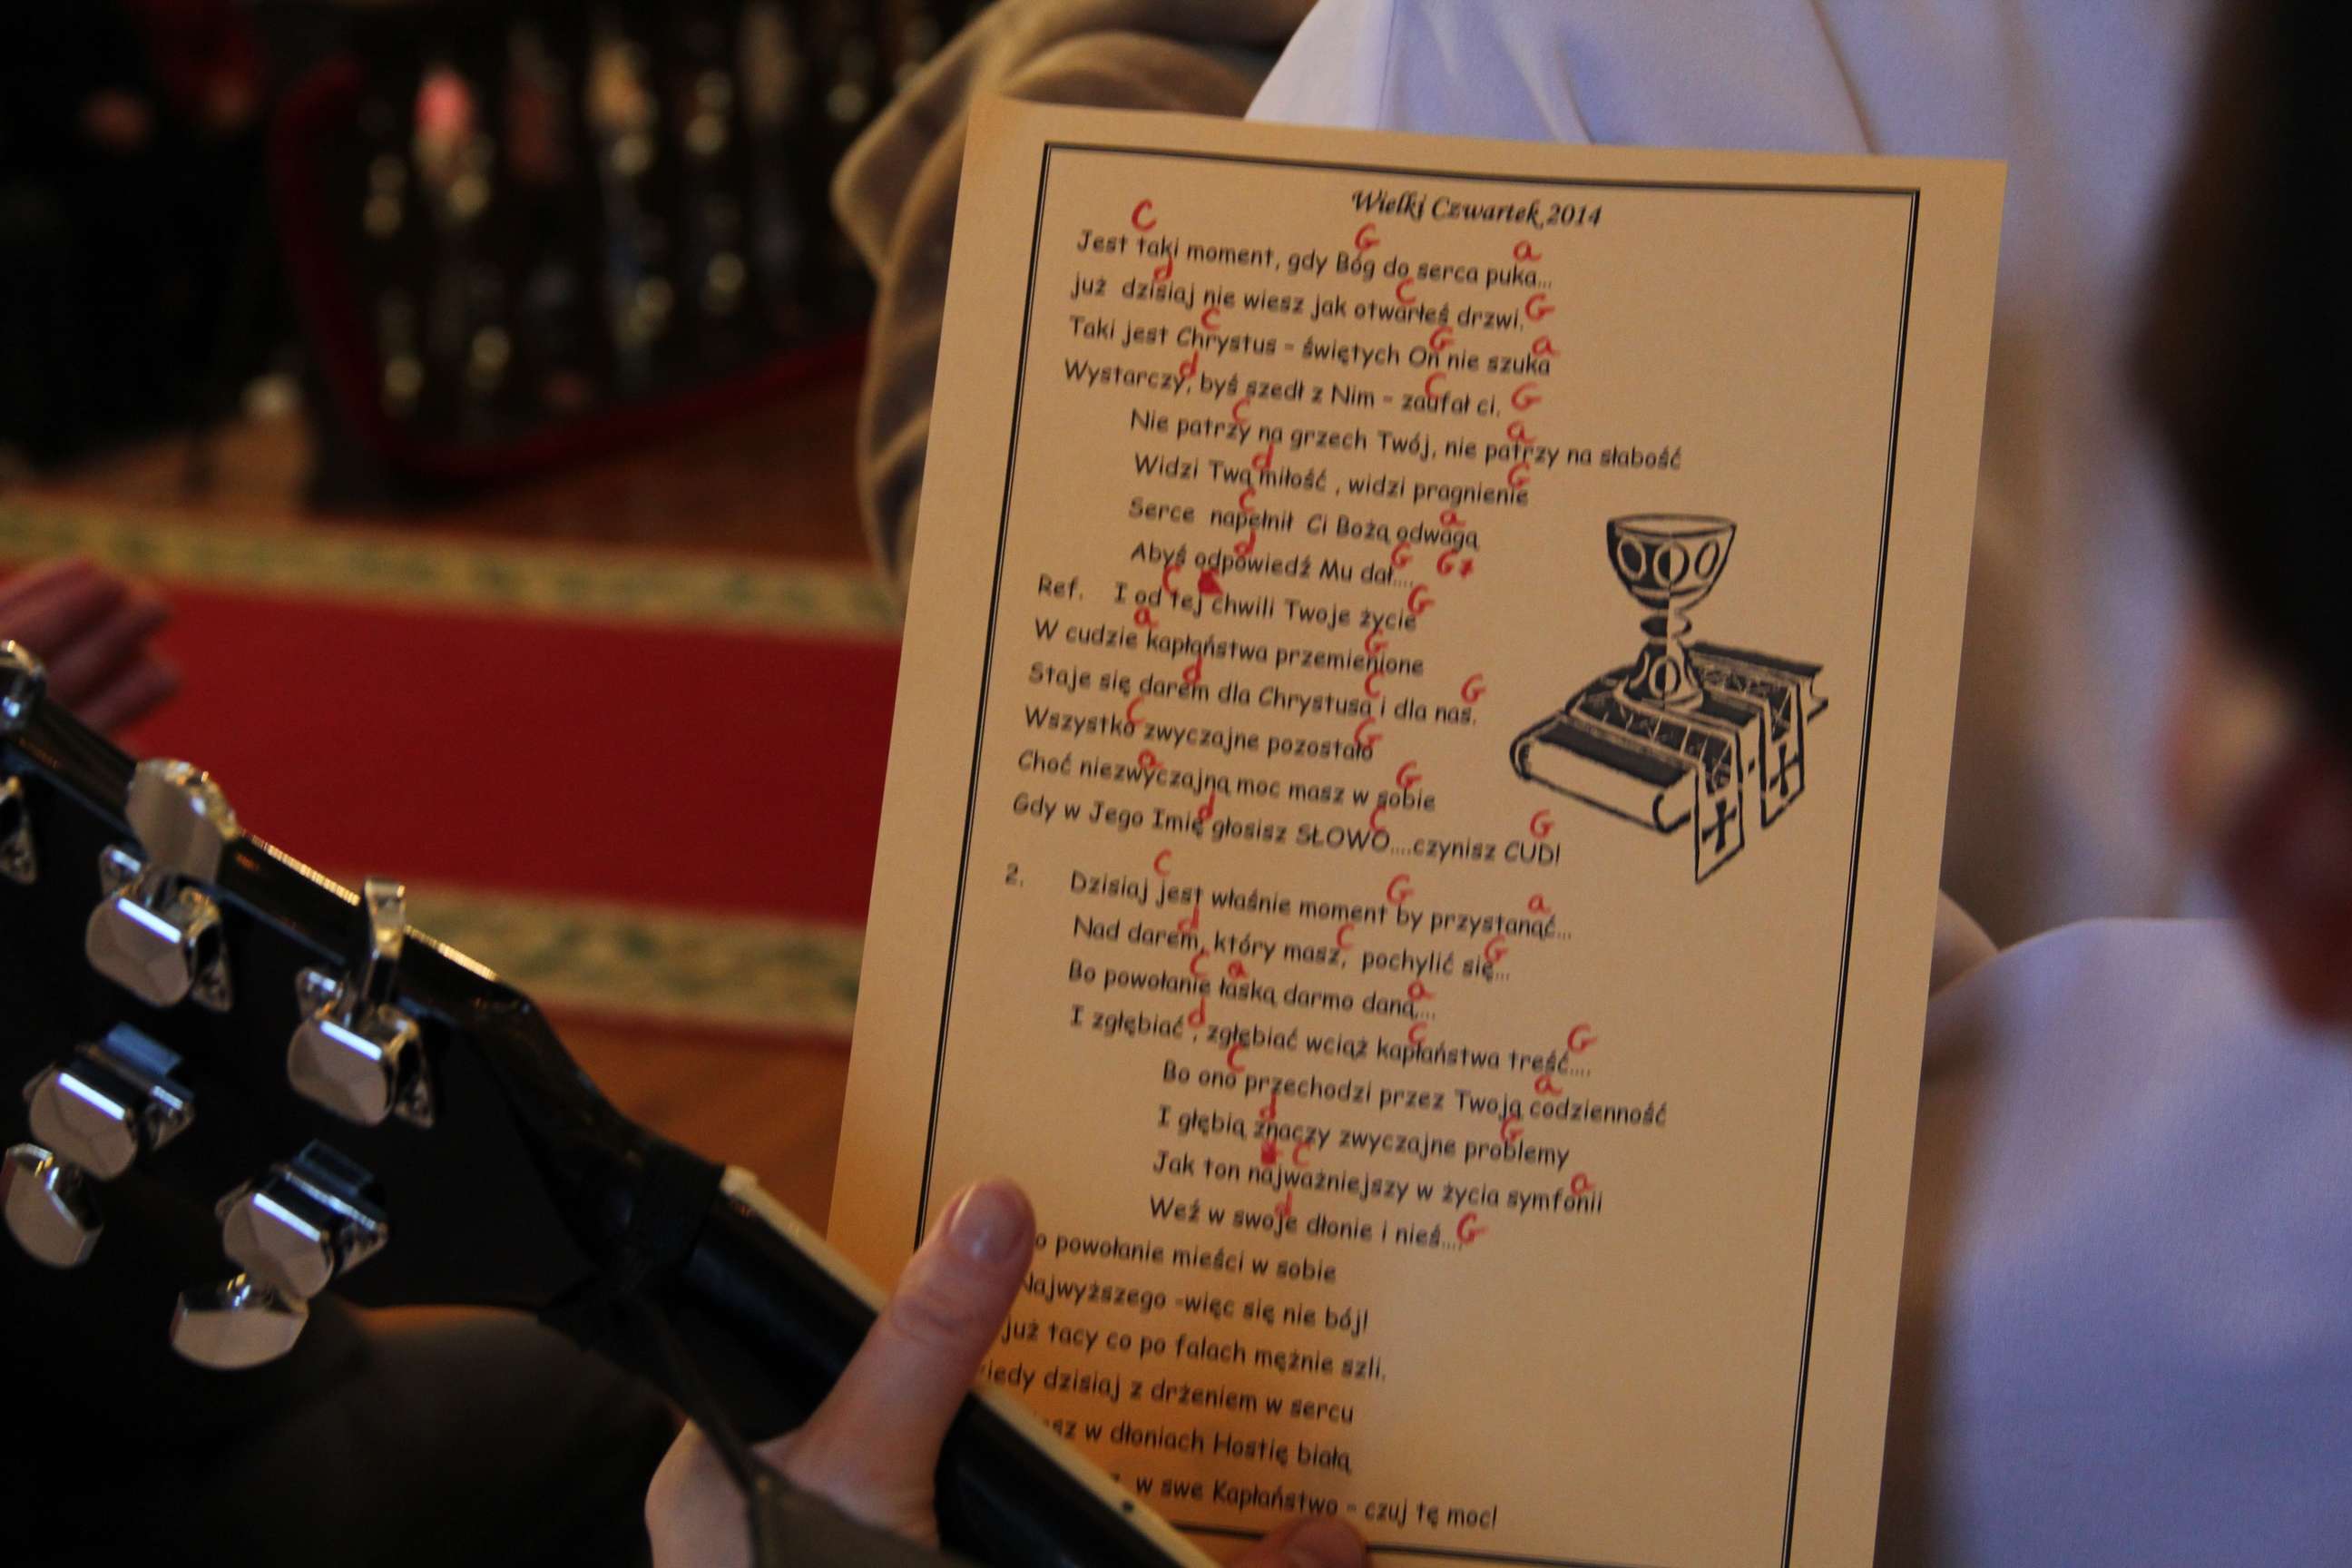 Wielki Czwartek 2014
C G a
Jest taki moment, gdy Bóg do serca puka...
d C G
już dzisiaj nie wiesz jak otwarłeś drzwi.
C G a
Taki jest Chrystus - świętych On nie szuka
d C G
Wystarczy, byś szedł z Nim - zaufał ci.
C a
Nie patrzy na grzech Twój, nie patrzy na słabość
d G
Widzi Twą miłość , widzi pragnienie
C a
Serce napełnił Ci Bożą odwagą
d G G7
Abyś odpowiedź Mu dał....
C G
Ref. I od tej chwili Twoje życie
a G
W cudzie kapłaństwa przemienione
d C G
Staje się darem dla Chrystusa i dla nas.
C G
Wszystko zwyczajne pozostało
a G
Choć niezwyczajną moc masz w sobie
d C G
Gdy w Jego Imię głosisz SŁOWO....czynisz CUD!
C G a
2. Dzisiaj jest właśnie moment by przystanąć...
d C G
Nad darem, który masz, pochylić się...
C a a
Bo powołanie łaską darmo daną...
d C G
I zgłębiać , zgłębiać wciąż kapłaństwa treść....
C a
Bo ono przechodzi przez Twoją codzienność
d G
I głębią znaczy zwyczajne problemy
C a
Jak ton najważniejszy w życia symfonii
d G
Weź w swoje dłonie i nieś....
powołanie mieści w sobie
Najwyższego -więc się nie bój!
już tacy co po falach mężnie szli.
dzisiaj z drżeniem w sercu
w dłoniach Hostię białą
w swe Kapłaństwo - czuj tę moc!